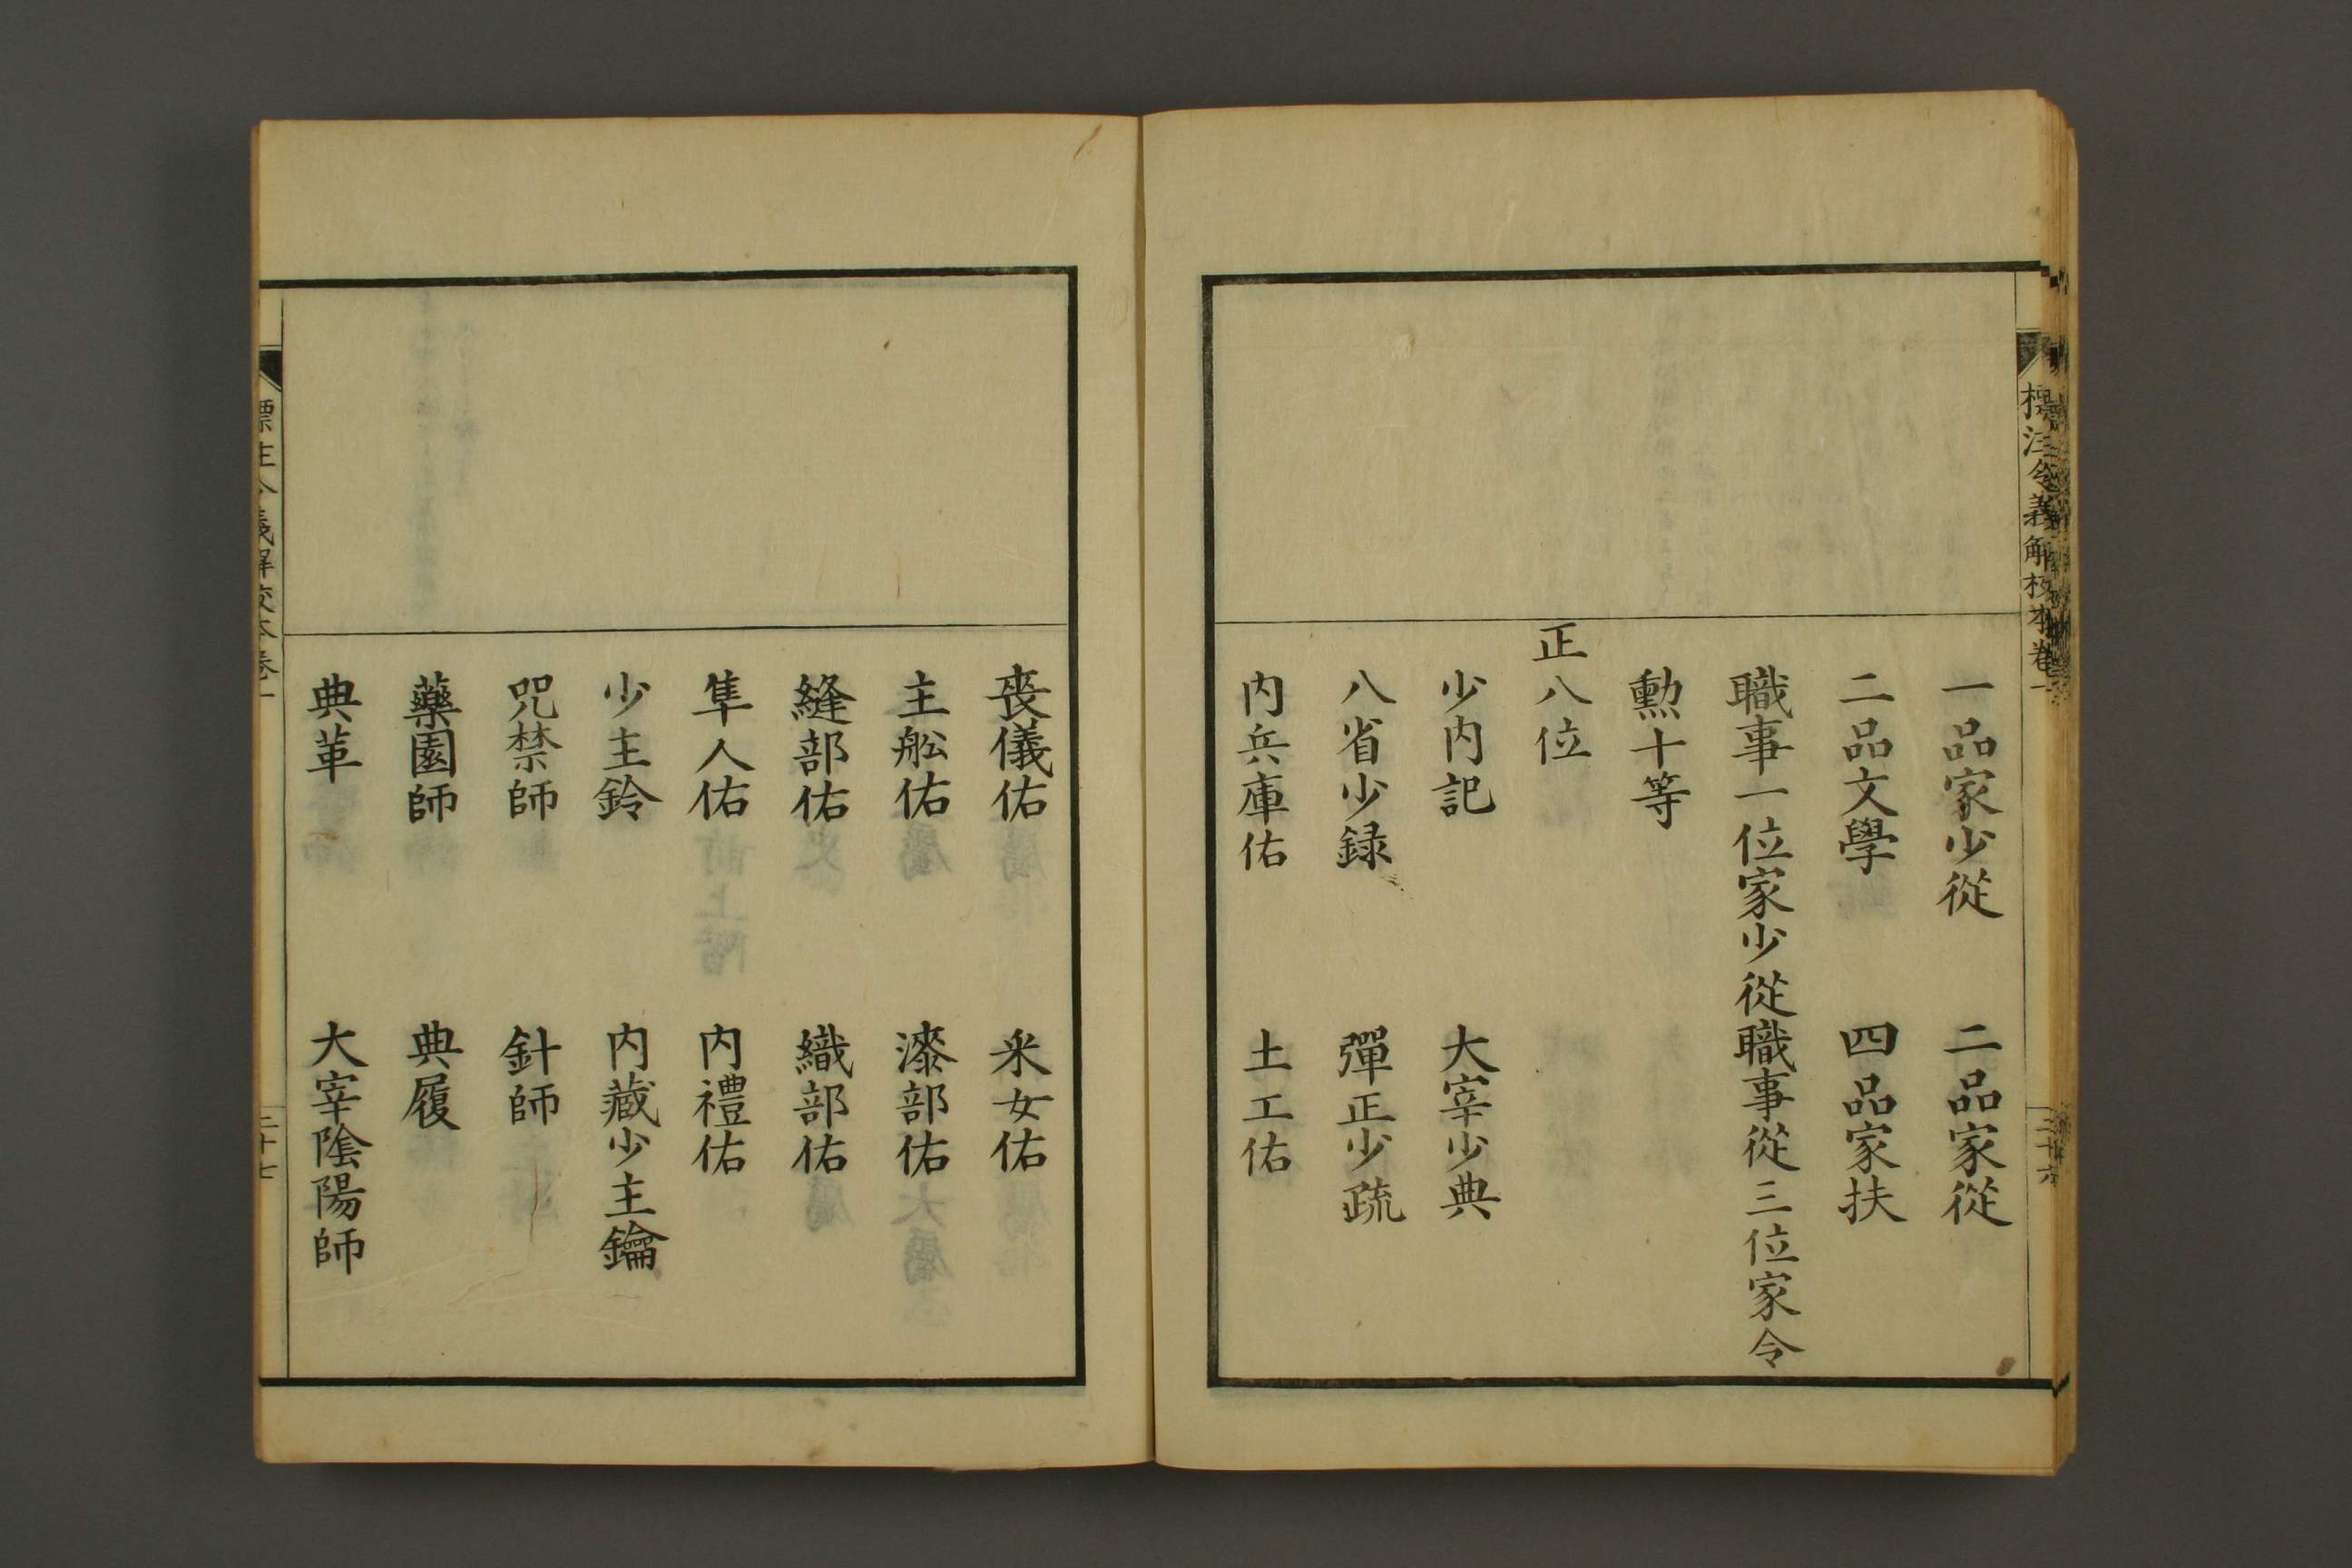 標注令義解校本卷一
一品家少從　二品家從
二品文學　四品家扶
職事一位家少從職事從三位家令
勲十等
正八位
少内記　大宰少典
八省少録　彈正少疏
内兵庫佑　土工佑
喪儀佑　采女佑
主舩佑　漆部佑
縫部佑　織部佑
隼人佑　内禮佑
少主鈴　内藏少主鑰
咒禁師　針師
藥園師　典履
典革　大宰陰陽師
標注令義解校本卷一
二十七